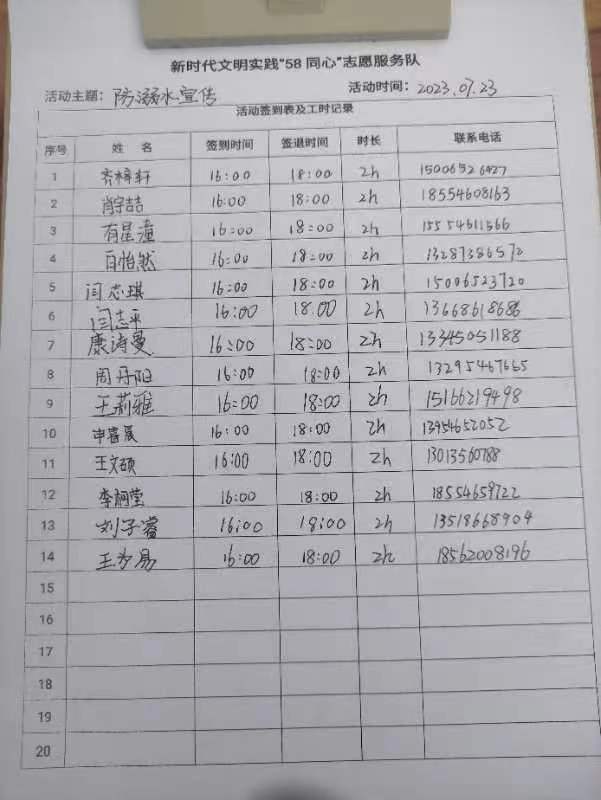 新时代文明实践“58 同心”志愿服务队
活动主题: 防溺水宣传 活动时间: 2023.07.23
活动签到表及工时记录
序号 姓 名 签到时间 签退时间 时长 联系电话
1 齐樟轩 16:00 18:00 2h
2 肖宇喆 16:00 18:00 2h 18554608163
3 有星潼 16:00 18:00 2h 15554611566
4 白怡然 16:00 18:00 2h 13287386572
5 闫志琪 16:00 18:00 2h 15006523720
6 闫志平 16:00 18.00 2h 13668618686
7 康诗曼 16:00 18:00 2h 13345051188
8 周丹阳 16:00 18:00 2h 13295467665
9 王莉雅 16:00 18:00 2h 15166219498
10 申睿晟 16:00 18:00 2h 13954652052
11 王文硕 16:00 18:00 2h 13013560788
12 16:00 18:00 2h 18554659722
13 刘子睿 16:00 18:00 2h 13518668904
14 16:00 18:00 2h 18562008196
15
16
17
18
19
20